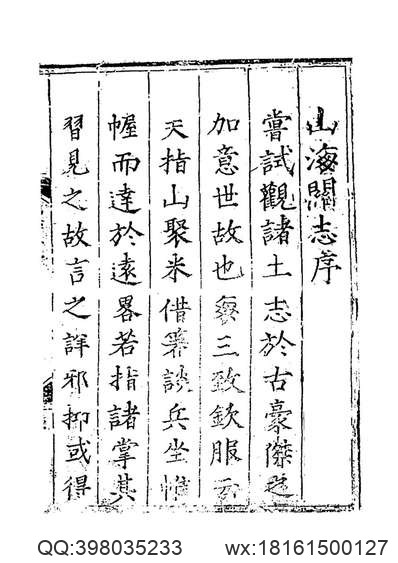 山海關志序
嘗試觀諸土志於古豪傑
加意世故也三致欽服云
天指山聚米借箸談兵坐帷
幄而達於遠畧若指諸掌其
習見之故言之詳邪抑或得
QQ:398035233 wx:18161500127